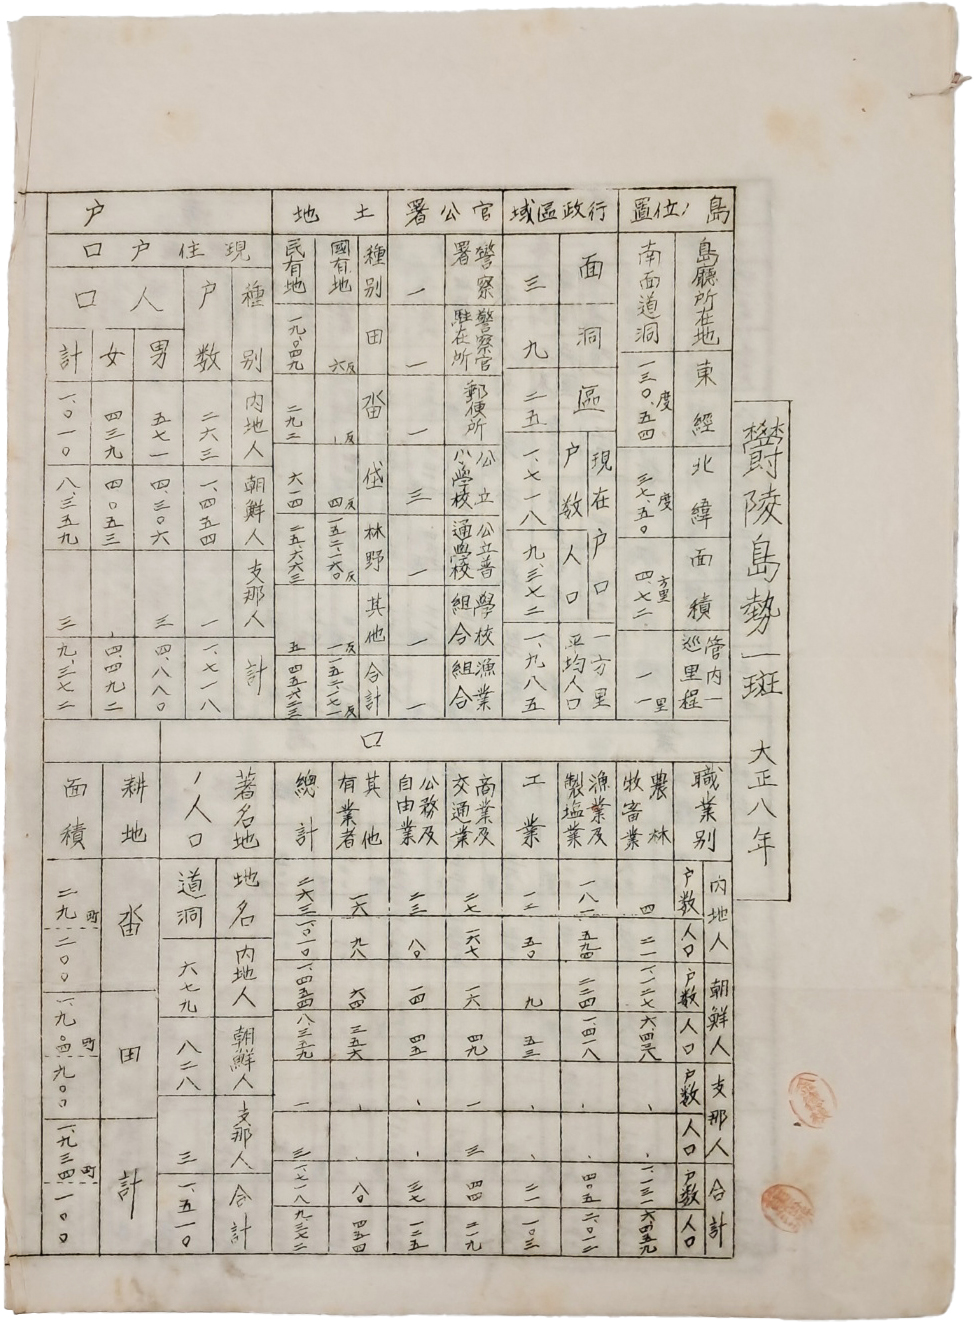 鬱陵島勢一斑 大正八年
島ノ位置
島廳所在地 東經 北緯 面積 管内一巡里程
南面道洞 一三〇、五四度 三七、五〇度 四、七二方里 一一里
行政區域
面 洞 區 現在戸口 戸数 人口 一方里平均人口
三 九 二五 一、七一八 九、三七二 一、九八五
官公署
警察署 警察官駐在所 郵便所 公立小学校 公立普通学校 学校組合 漁業組合
一 一 一 三 一 一 一
土地
種別 田 畓 垈 林野 其他 合計
國有地 六反 、反 四反 一五二、一六〇反 一反 一五二、一七一反
民有地 一九、〇四九 二九二 六一四 二五、六六三 五 四五六二三
戸
現住戸口
種別 内地人 朝鮮人 支那人 計
戸数 二六三 一、四五四 一 一、七一八
人口
男 五七一 四、三〇六 三 四、八八〇
女 四三九 四〇五三 、 四、四九二
計 一、〇一〇 八、三五九 三 九、三七二
口
職業別 内地人 朝鮮人 支那人 合計
戸数 人口 戸数 人口 戸数 人口 戸数 人口
農林牧畜業 四 二一 一、一二七 六、四三八 、 、 一、一三一 六、四五九
漁業及製塩業 一八一 五九四 二二四 一、四一八 、 、 四〇五 二、〇一二
工業 一二 五〇 九 五三 、 、 二一 一〇三
商業及交通業 二七 一六七 一六 四九 一 三 四四 二一九
公務及自由業 二三 八〇 一四 四五 、 、 三七 一二五
其他有業者 一六 九八 六四 三五六 、 、 八〇 四五四
總計 二六三 一、〇一〇 一、四五四 八、三五九 一 三 一、七一八 九、三七二
著名地ノ人口
地名 内地人 朝鮮人 支那人 合計
道洞 六七九 八二八 三 一、五一〇
耕地面積
畓 田 計
二九町二〇〇 一、九〇四町九〇〇 一、九三四町一〇〇